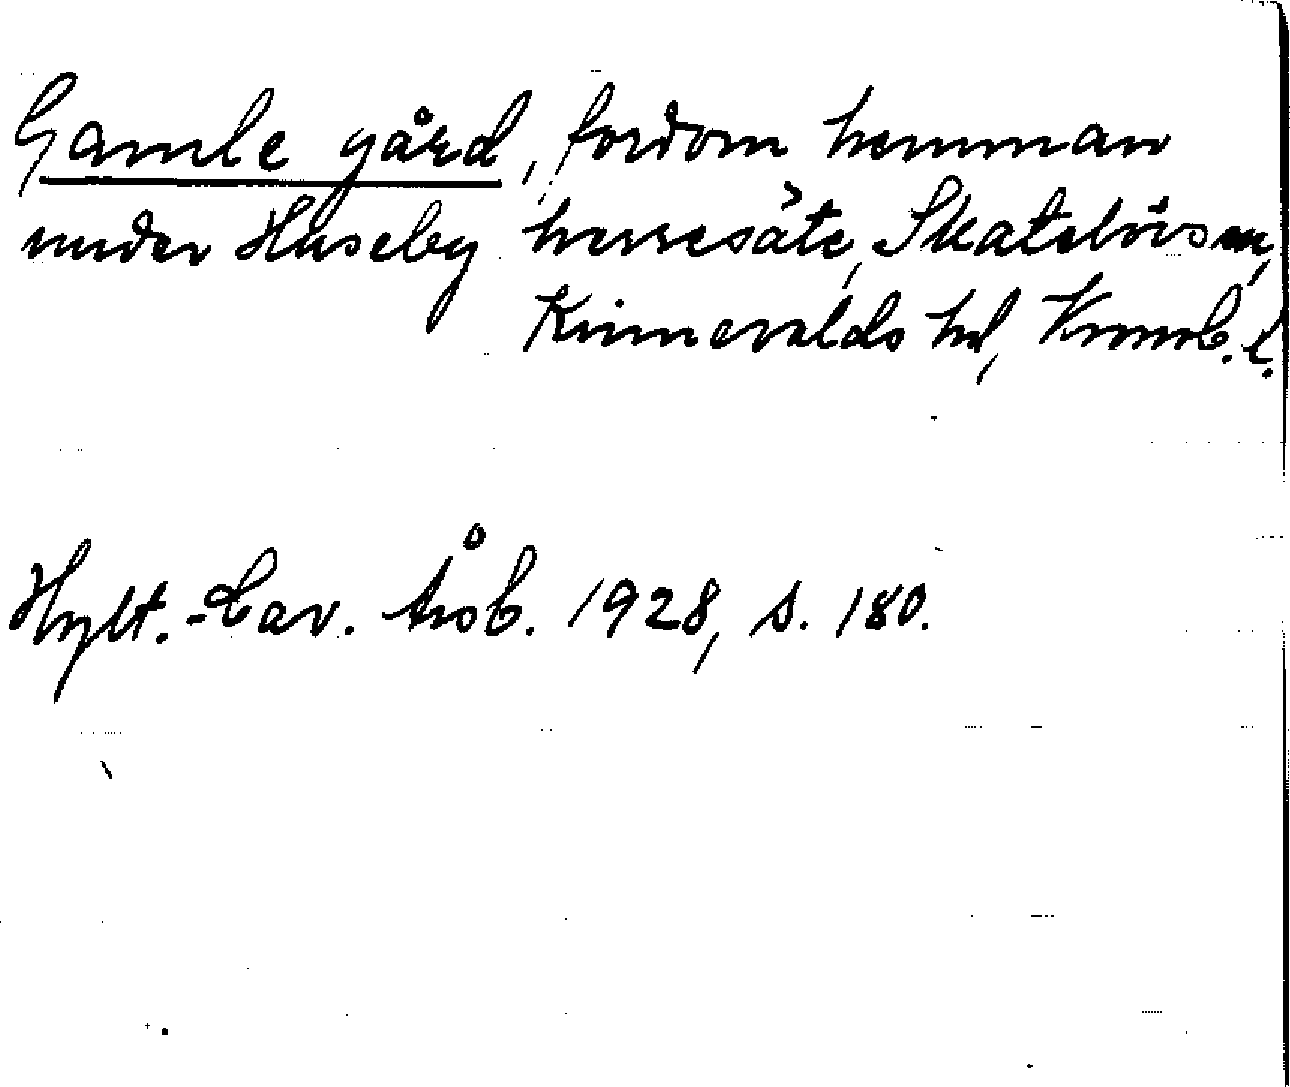 Gamle gård, fordom hemman
under Huseby herresäte, Skatelövs sn,
Kinnevalds hd, Kronob. l.
Hylt.-Cav. Årsb. 1928, s. 180.